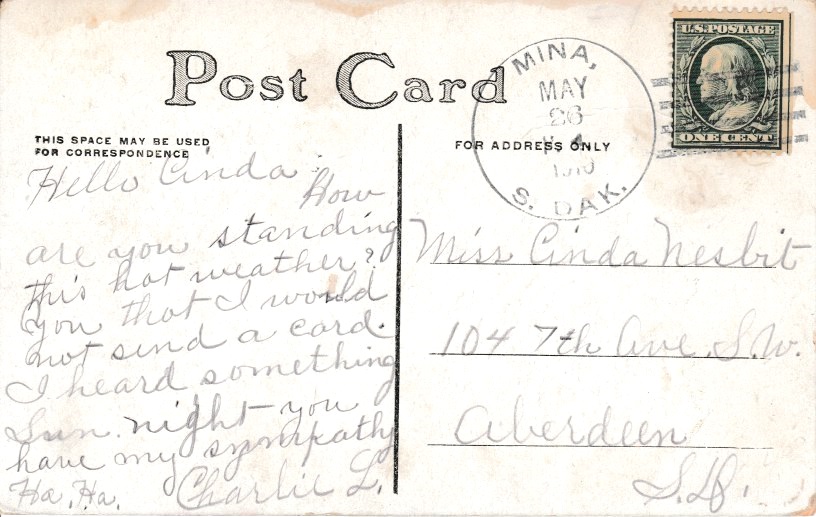 Post Card
THIS SPACE MAY BE USED
FOR CORRESPONDENCE
FOR ADDRESS ONLY
MINA,
MAY
26
1910
S. DAK.
U.S. POSTAGE
ONE CENT
Hello Cinda. How
are you standing
this hot weather?
you that I would
not send a card.
I heard something
Sun. night you
have my sympathy
Ha. Ha. Charlie L.
Miss Cinda Nesbit
104 7th Ave. S.W.
Aberdeen
S.D.